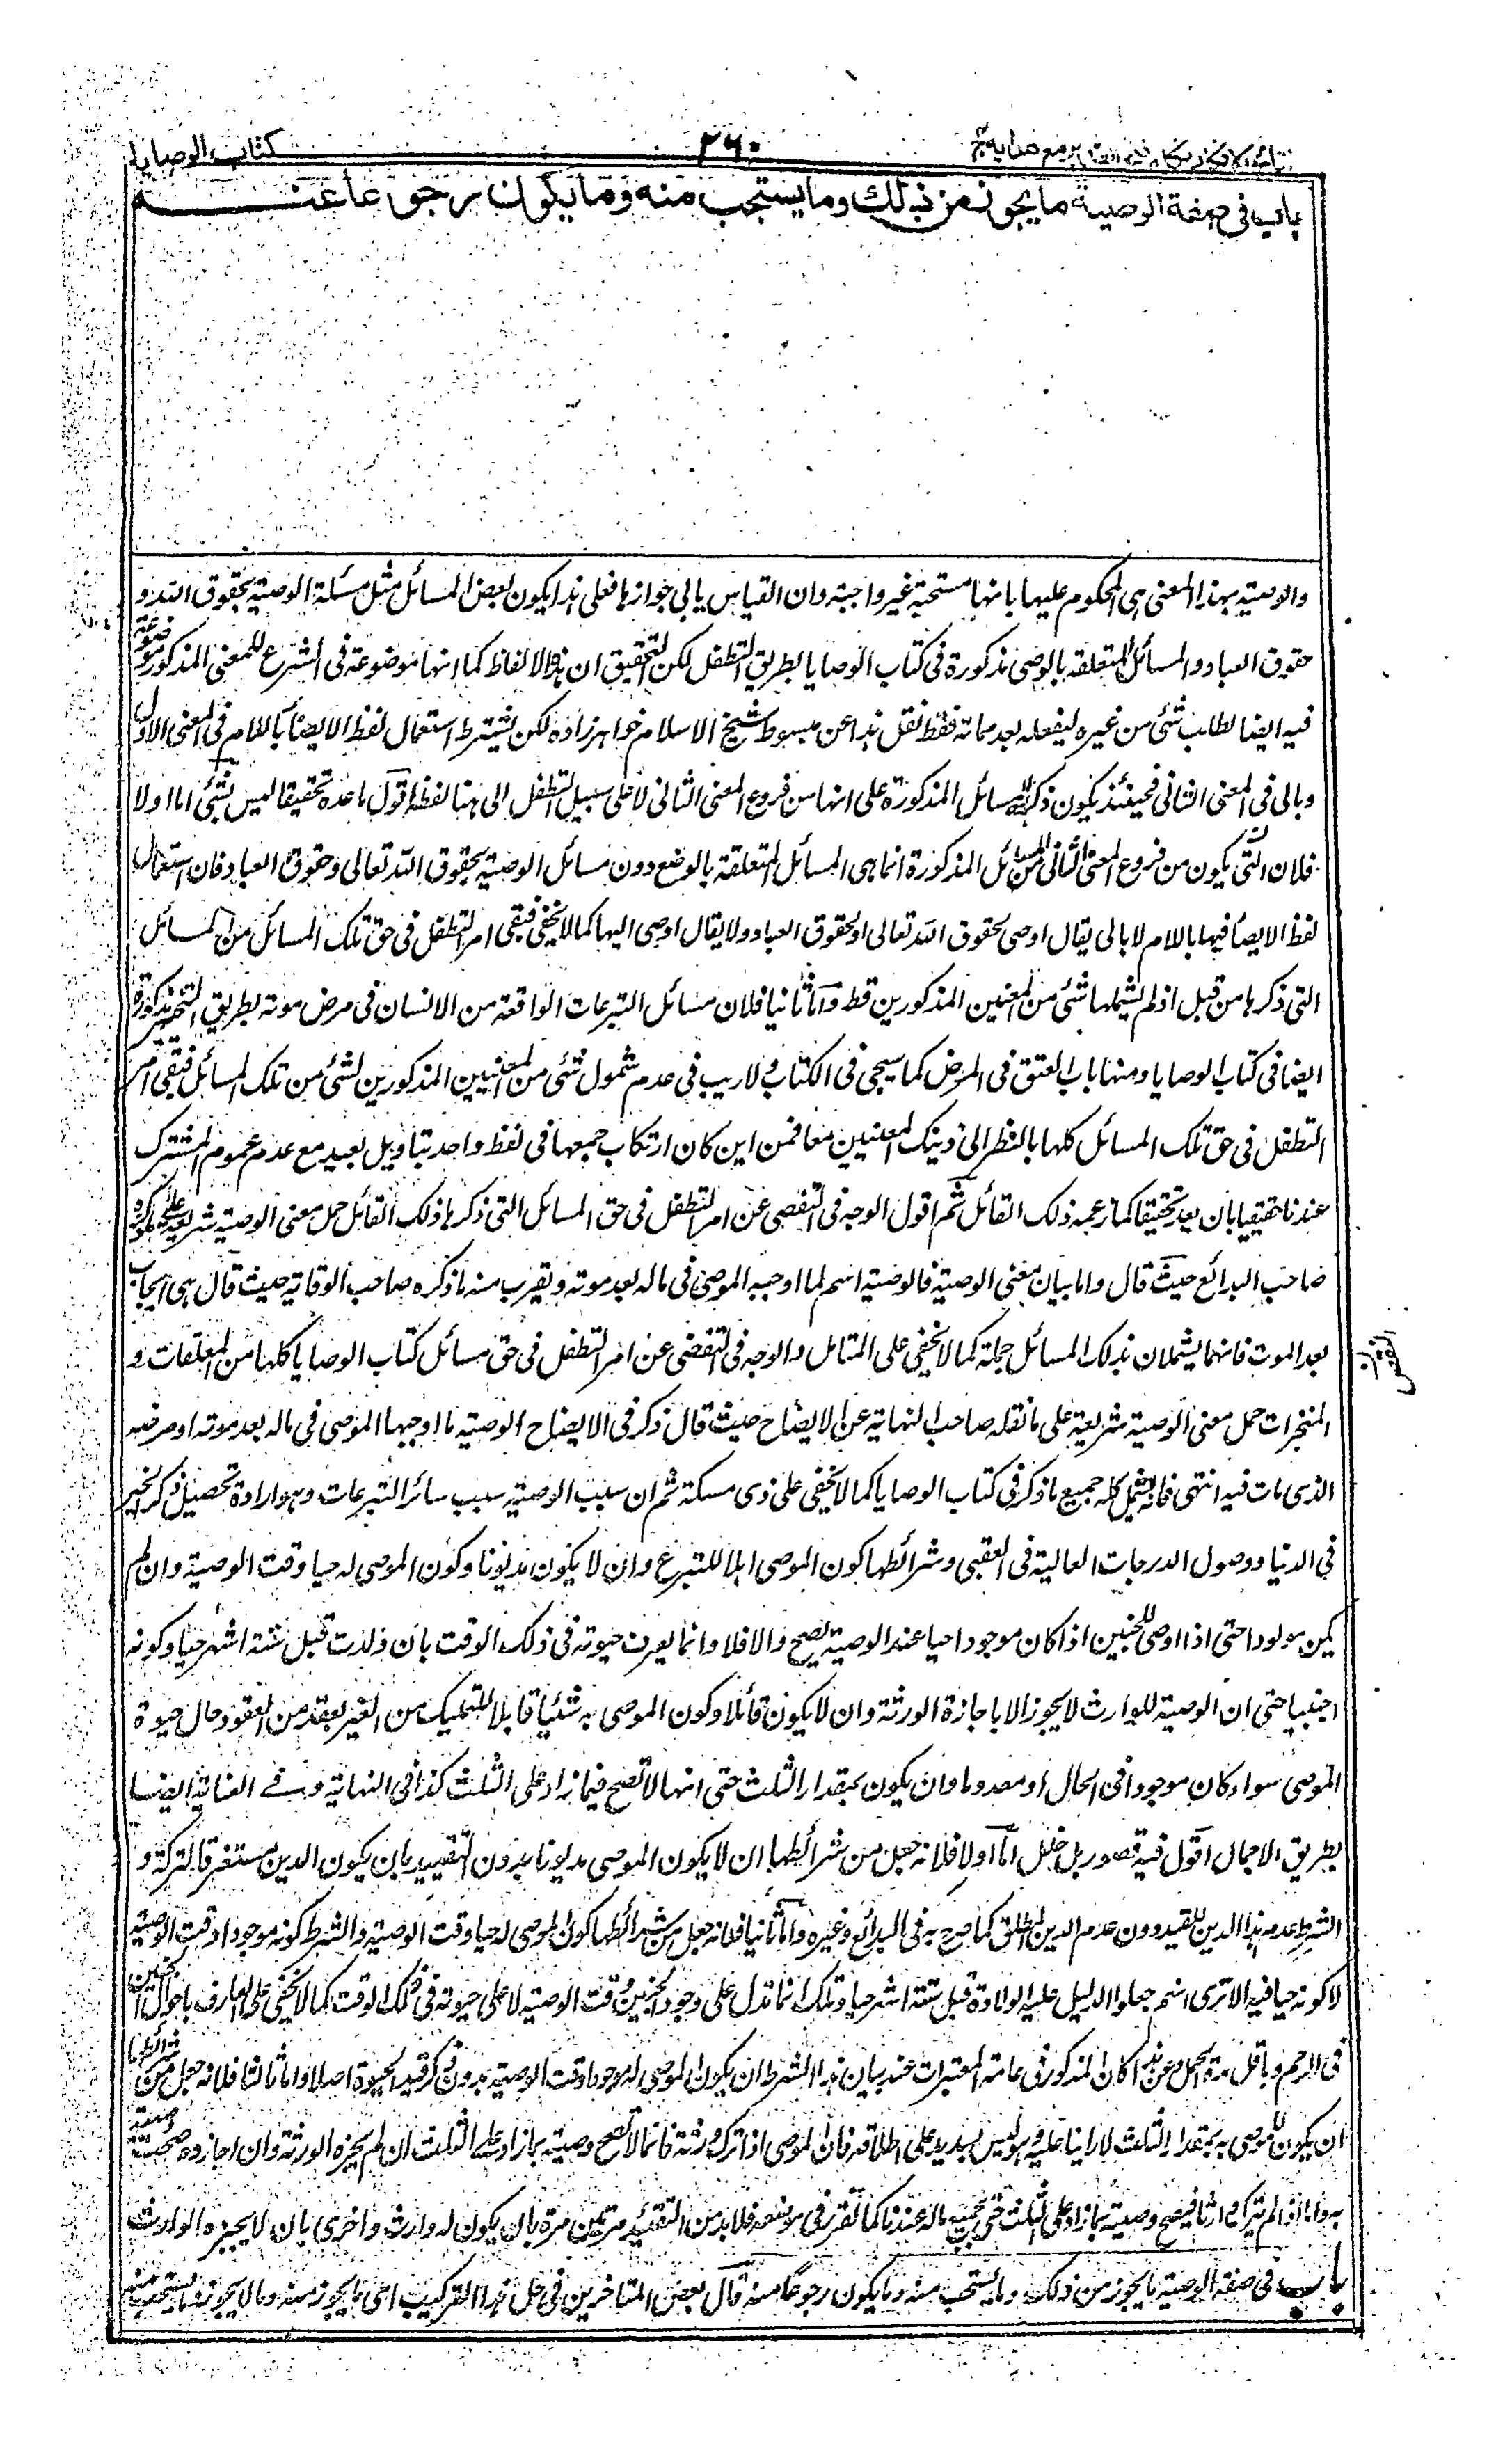 كتاب الوصايا
٢٦٠
باب في صفة الوصية ما يجوز من ذلك وما يستحب منه وما يكون رجوعا عنه
والوصية بهذا المعنى هى المحكوم عليها بانها مستحبة غير واجبة وان القياس يابى جوازها فعلى هذا يكون بعض المسائل مثل مسئلة الوصية بحقوق الله و
حقوق العباد والمسائل المتعلقة بالوصى مذكورة فى كتاب الوصايا بطريق التطفل لكن التحقيق ان هذه الالفاظ كما انها موضوعة فى الشرع للمعنى المذكور موضوعة
فيه ايضا لطلب شئ من غيره ليفعله بعد مماته فقط نقل هذا عن مبسوط شيخ الاسلام خواهر زاده لكن يشترط استعمال لفظ الايصاء باللام فى المعنى الاول
وبالى فى المعنى الثانى فحينئذ يكون ذكر المسائل المذكورة على انها من فروع المعنى الثانى لا على سبيل التطفل الى هنا لفظه اقول ما عده تحقيقا ليس بشئ اما اولا
فلان التى يكون من فروع المعنى الثانى من المسائل المذكورة انما هى المسائل المتعلقة بالوضع دون مسائل الوصية بحقوق الله تعالى وحقوق العباد فان استعمال
لفظ الايصاء فيها باللام لا بالى يقال اوصى بحقوق الله تعالى او بحقوق العباد ولا يقال اوصى اليها كما لا يخفى فبقى امر التطفل فى حق تلك المسائل من المسائل
التى ذكرها من قبل اذ لم يشملها شئ من المعنيين المذكورين قط واما ثانيا فلان مسائل التبرعات الواقعة من الانسان فى مرض موته بطريق التنجيز مذكورة
ايضا فى كتاب الوصايا ومنها باب العتق فى المرض كما سيجى فى الكتاب ولا ريب فى عدم شمول شئ من المعنيين المذكورين لشئ من تلك المسائل فبقى امر
التطفل فى حق تلك المسائل كلها بالنظر الى ذينك المعنيين معا فمن اين كان ارتكاب جمعها فى لفظ واحد بتاويل بعيد مع عدم عموم المشترك
عندنا حقيقا بان يعد تحقيقا كما زعمه ذلك القائل ثم اقول الوجه فى التفصى عن امر التطفل فى حق المسائل التى ذكرها ذلك القائل حمل معنى الوصية شريعة على ما ذكره
صاحب البدائع حيث قال واما بيان معنى الوصية فالوصية اسم لما اوجبه الموصى فى ماله بعد موته ويقرب منه ما ذكره صاحب الوقاية حيث قال هى ايجاب
بعد الموت فانهما يشملان تلك المسائل جملة كما لا يخفى على المتامل والوجه فى التفصى عن امر التطفل فى حق مسائل كتاب الوصايا كلها من المعلقات و
المنجزات حمل معنى الوصية شريعة على ما نقله صاحب النهاية عن الايضاح حيث قال ذكر فى الايضاح الوصية ما اوجبها الموصى فى ماله بعد موته او مرضه
الذى مات فيه انتهى فانه يشمل كله جميع ما ذكر فى كتاب الوصايا كما لا يخفى على ذى مسكة ثم ان سبب الوصية سبب سائر التبرعات وهو ارادة تحصيل ذكر الخير
فى الدنيا ووصول الدرجات العالية فى العقبى وشرائطها كون الموصى اهلا للتبرع وان لا يكون مديونا وكون الموصى له حيا وقت الوصية وان لم
يكن مولودا حتى اذا اوصى للجنين اذا كان موجودا حيا عند الوصية يصح والا فلا وانما يعرف حيوته فى ذلك الوقت بان ولدت قبل ستة اشهر حيا وكونه
اجنبيا حتى ان الوصية للوارث لا يجوز الا باجازة الورثة وان لا يكون قاتلا وكون الموصى به شيئا قابلا للتمليك من الغير بعقد من العقود حال حيوة
الموصى سواء كان موجودا فى الحال او معدوما وان يكون بمقدار الثلث حتى انها لا تصح فيما زاد على الثلث كذا فى النهاية وفى العناية ايضا
بطريق الاجمال اقول فيه قصور بل خلل اما اولا فلانه جعل من شرائطها ان لا يكون الموصى مديونا بدون التقييد بان يكون الدين مستغرقا لتركته و
الشرط عدم هذا الدين المقيد دون عدم الدين المطلق كما صرح به فى البدائع وغيره واما ثانيا فلانه جعل من شرائطها كون الموصى له حيا وقت الوصية والشرط كونه موجودا وقت الوصية
لا كونه حيا فيه الا ترى انهم جعلوا الدليل عليه الولادة قبل ستة اشهر حيا وتلك انما تدل على وجود الجنين وقت الوصية لا على حيوته فى ذلك الوقت كما لا يخفى على العارف باحوال الجنين
فى الرحم وباقل مدة الحمل وعن هذا كان المذكور فى عامة المعتبرات عند بيان هذا الشرط ان يكون الموصى له موجودا وقت الوصية بدون ذكر قيد الحيوة اصلا واما ثالثا فلانه جعل من شرائطها
ان يكون الموصى به بمقدار الثلث لا زائدا عليه وهو ليس بسديد على اطلاقه فان الموصى اذا ترك ورثة فانما لا تصح وصيته بما زاد على الثلث ان لم يجزه الورثة وان اجازوه صحت وصيته
به واما اذا لم يترك وارثا فيصح وصيته بما زاد على الثلث حتى بجميع ماله عندنا كما تقرر فى موضعه فلا بد من التقييد مرتين مرة بان يكون له وارث واخرى بان لا يجيزه الوارث
باب فى صفة الوصية ما يجوز من ذلك وما يستحب منه وما يكون رجوعا منه قال بعض المتاخرين فى حل هذا التركيب اى ما يجوز منه وما لا يجوز وما يستحب منه